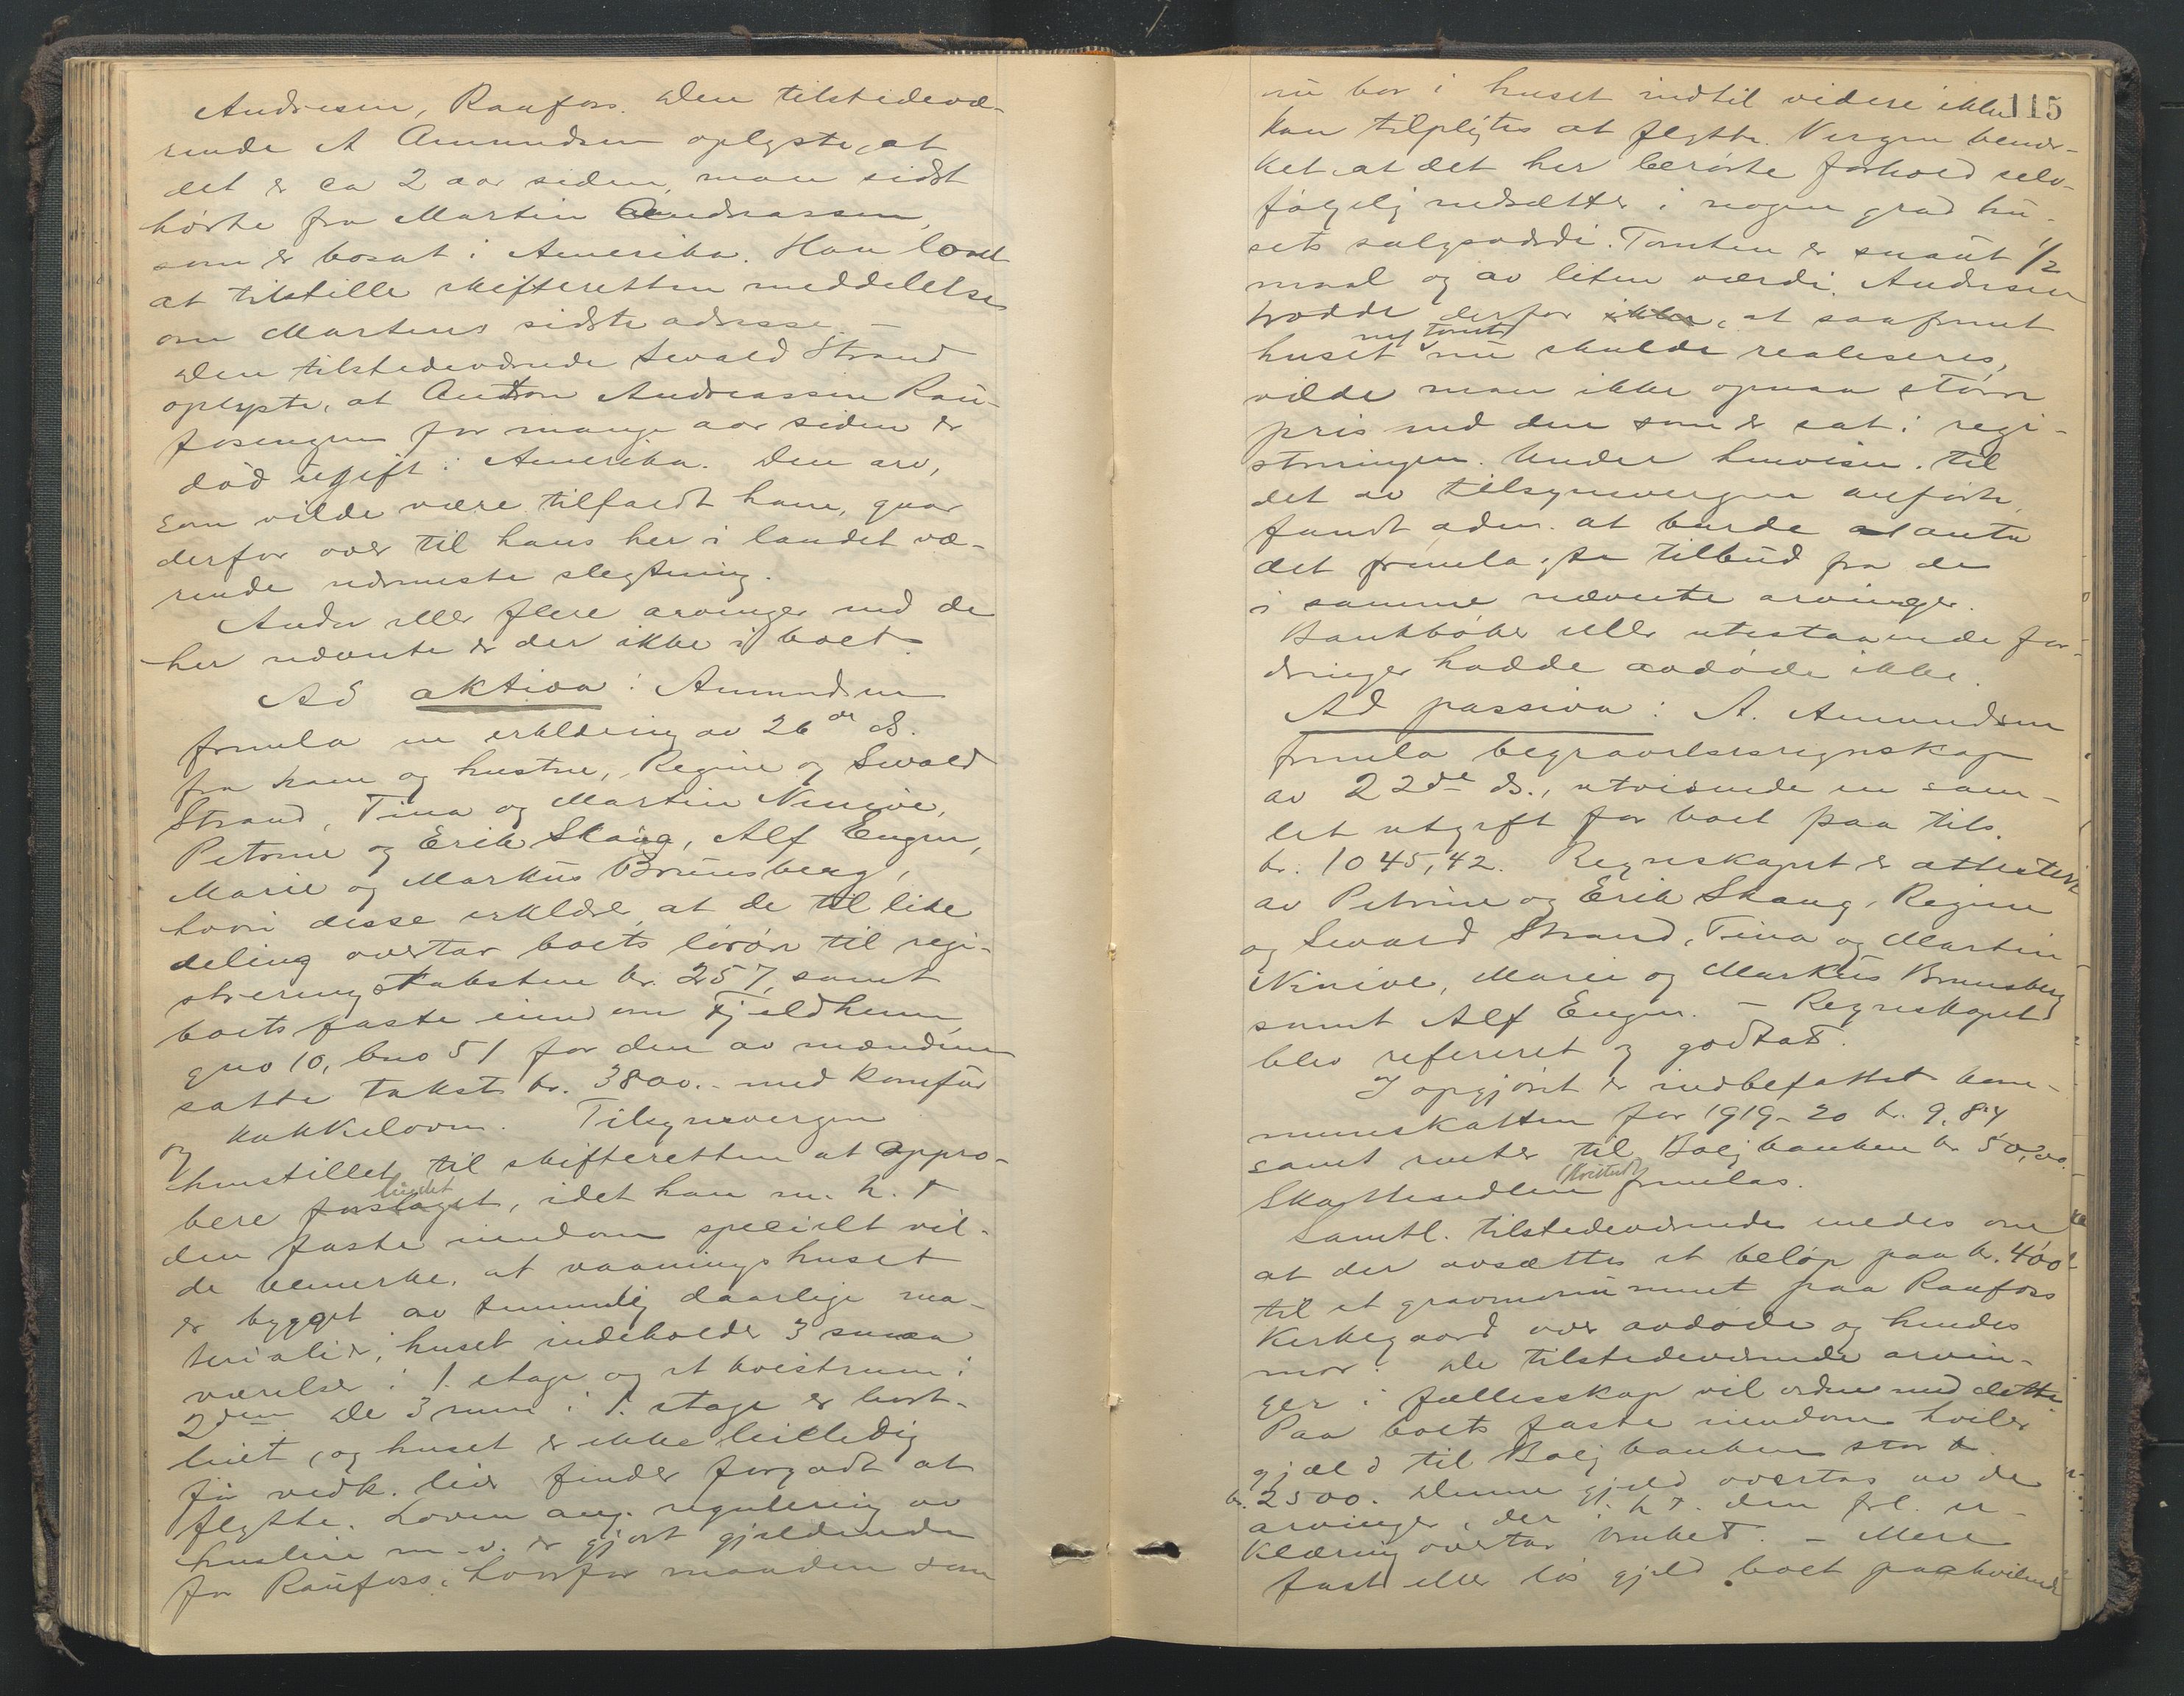 Andresen, Raufoss. Den tilstedevæ-
rende A Amundsen oplyste, at
det er ca 2 aar siden, man sidst
hørte fra Martin Andreassen,
som er bosat i Amerika. Han lovet
at tilstille skifteretten meddelelse
om Martins sidste adresse. —
Den tilstedeværende Sevald Strand
oplyste, at Anton Andreassen Rau-
fosengen for mange aar siden er
død ugift i Amerika. Den arv,
som vilde være tilfaldt ham, gaar
derfor over til hans her i landet væ-
rende nærmeste slegtning.
Andre eller flere arvinger end de
her nævnte er der ikke i boet.
Ad aktiva: Amundsen
fremla en erklæring av 26de ds.
fra ham og hustru, Regine og Sevald
Strand, Tina og Martin Ninive,
Petrine og Erik Skaug, Alf Engen,
Marie og Markus Brunsberg,
hvori disse erklærer, at de til like
deling overtar boets løsøre til regi-
streringstaksten kr. 257, samt
boets faste eiendom Fjeldheim
gno 10, bno 51 for den av mændene
satte takst kr. 3800.- med komfur
og kakkelovn. Tilsynsvergen
henstillet til skifteretten at appro-
bere forslaget, idet han m. h. t
budet
den faste eiendom specielt vil-
de bemerke, at vaaningshuset
er bygget av temmelig daarlige ma-
terialer; huset indeholder 3 smaa
værelser i 1. etage og et kvistrum i
2den. De 3 rum i 1. etage er bort-
leiet, og huset er ikke leiledig
før vedk. leier finder forgodt at
flytte. Loven ang. regulering av
husleie m. v. er gjort gjældende
for Raufoss, hvorfor manden som
115
nu bor i huset indtil videre ikke
kan tilpligtes at flytte. Vergen bemær-
ket at det her berørte forhold selv-
følgelig nedsætter i nogen grad hu-
sets salgsværdi. Tomten er snaut 1/2
maal og av liten værdi. Andresen
trodde derfor ikke, at saafremt
huset m/ tomt nu skulde realiseres,
vilde man ikke opnaa større
pris end den som er sat i regi-
streringen. Under henvisn. til
det av tilsynsvergen anførte,
fandt adm. at burde anta
det fremlagte tilbud fra de
i samme nævnte arvinger.
Bankbøker eller utestaaende for-
dringer hadde avdøde ikke.
Ad passiva: A. Amundsen
fremla begravelsesregnskap
av 22de ds., utvisende en sam-
let utgift for boet paa tils.
kr. 1045,42. Regnskapet er attestert
av Petrine og Erik Skaug, Regine
og Sevald Strand, Tina og Martin
Ninive, Marie og Markus Brunsberg
samt Alf Engen. — Regnskapet
blev refereret og godtat.
I opgjøret er indbefattet kom-
muneskatten for 1919-20 kr. 9,84
samt renter til Boligbanken kr 50,00.
Skattesedlen (kvittert) fremlas.
Samtl. tilstedeværende enedes om
at der avsættes et beløp paa kr. 400
til et gravmonument paa Raufoss
Kirkegaard over avdøde og hendes
mor. De tilstedeværende arvin-
ger i fællesskap vil ordne med dette.
Paa boets faste eiendom hviler
gjæld til Boligbanken stor
kr. 2500. Denne gjæld overtas av de
arvinger, der i. h. t. den frl. er-
klæring overtar bruket. — Mere
fast eller løs gjeld boet paahvilende